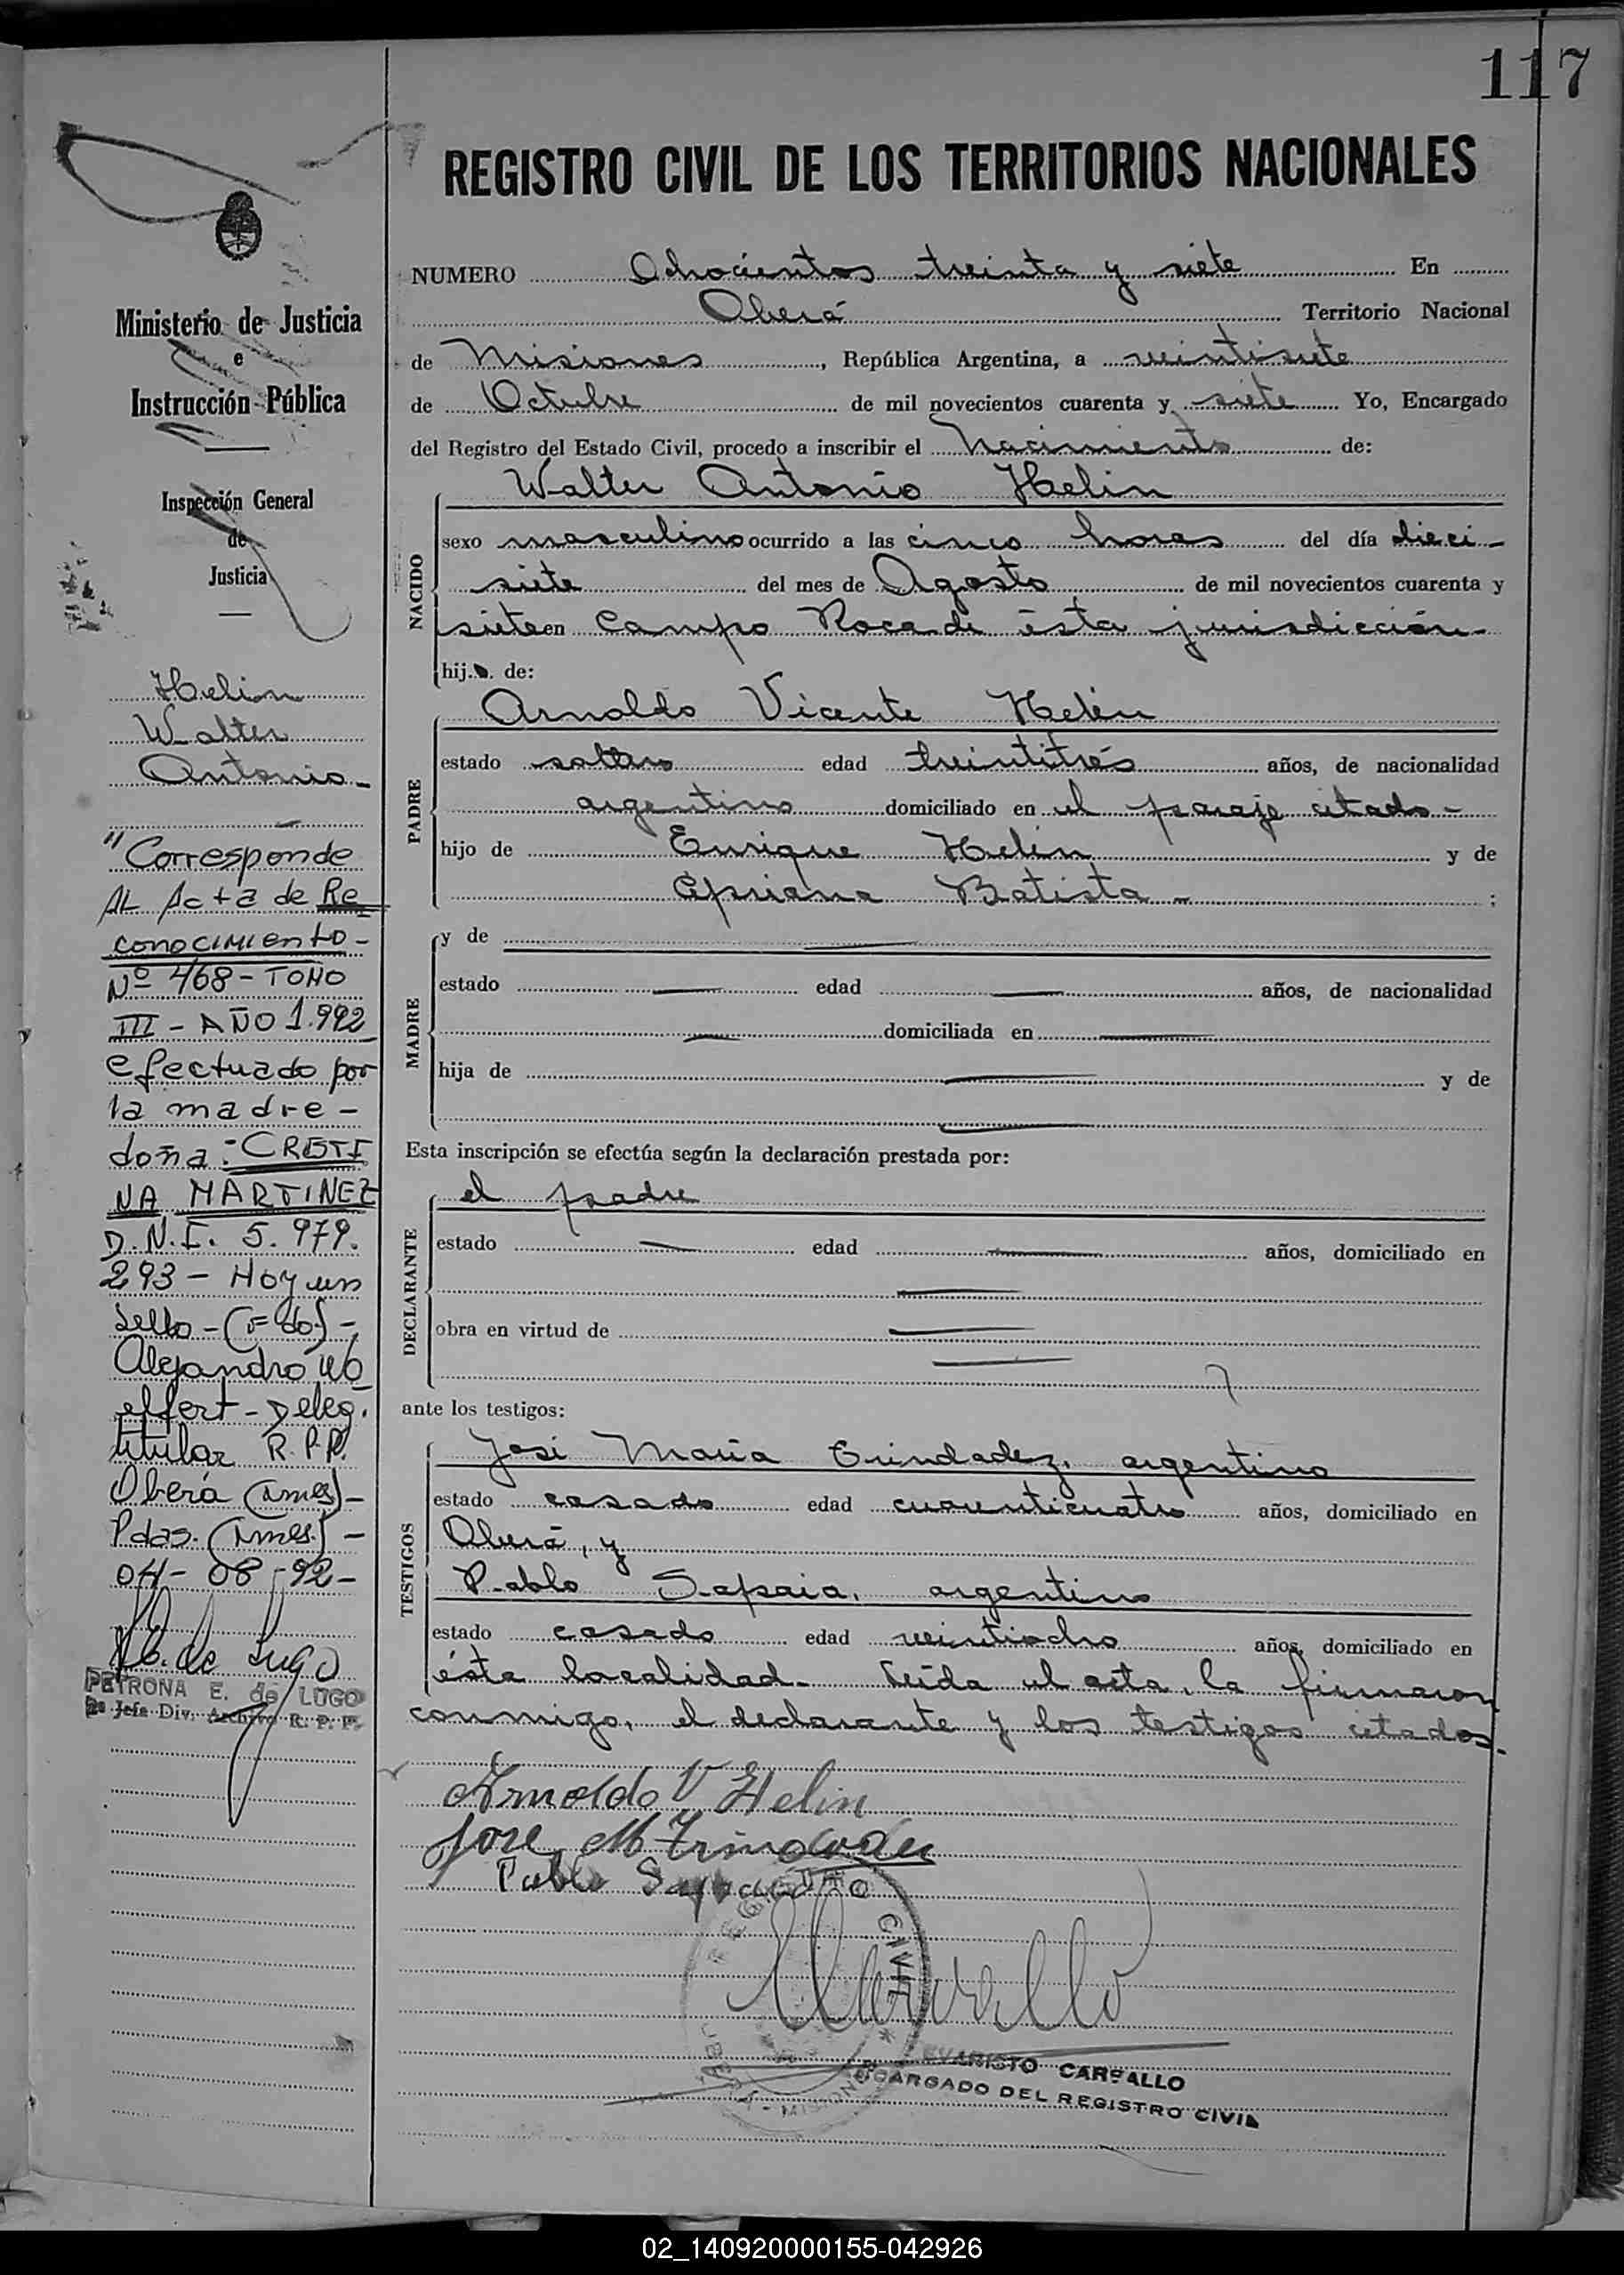 117
REGISTRO CIVIL DE LOS TERRITORIOS NACIONALES
NUMERO Ochocientos treinta y siete En
Oberá Territorio Nacional
de Misiones, República Argentina, a veintisiete
de Octubre de mil novecientos cuarenta y siete Yo, Encargado
del Registro del Estado Civil, procedo a inscribir el Nacimiento de:
Walter Antonio Helin
NACIDO
sexo masculino ocurrido a las cinco horas del día dieci-
siete del mes de Agosto de mil novecientos cuarenta y
siete en Campo Roca de ésta jurisdicción-
hij.o. de:
Arnoldo Vicente Helin
PADRE
estado soltero edad treintitrés años, de nacionalidad
argentino domiciliado en el paraje citado-
hijo de Enrique Helin y de
Cipriana Batista - ;
MADRE
y de
estado edad años, de nacionalidad
domiciliada en
hija de y de
Esta inscripción se efectúa según la declaración prestada por:
DECLARANTE
el padre
estado edad años, domiciliado en
obra en virtud de
ante los testigos:
TESTIGOS
José María Trindadez, argentino
estado casado edad cuarenticuatro años, domiciliado en
Oberá, y
Pablo Sapaia, argentino
estado casado edad veintiocho años, domiciliado en
ésta localidad- Leída el acta, la firmaron
conmigo, el declarante y los testigos citados.
Arnoldo V Helin
Jose M Trindadez
Pablo
REGISTRO CIVIL
OBERA - MISIONES
EVARISTO CARBALLO
ENCARGADO DEL REGISTRO CIVIL
Ministerio de Justicia
e
Instrucción Pública
Inspección General
de
Justicia
Helin
Walter
Antonio-
"Corresponde
AL Acta de Re
conocimiento-
Nº 468 - TOMO
III - AÑO 1.992
efectuado por
la madre -
doña: CRISTI
NA MARTINEZ
D.N.I. 5.979.
293 - Hoy un
sello - (Fdo) -
Alejandro
effert - Deleg.
titular R.P.P.
Oberá (Mnes) -
Pdas. (Mnes.) -
04 - 08 - 92 -
de Lugo
PETRONA E. de LUGO
2º Jefe Div. Archivo R. P. P.
02_140920000155-042926